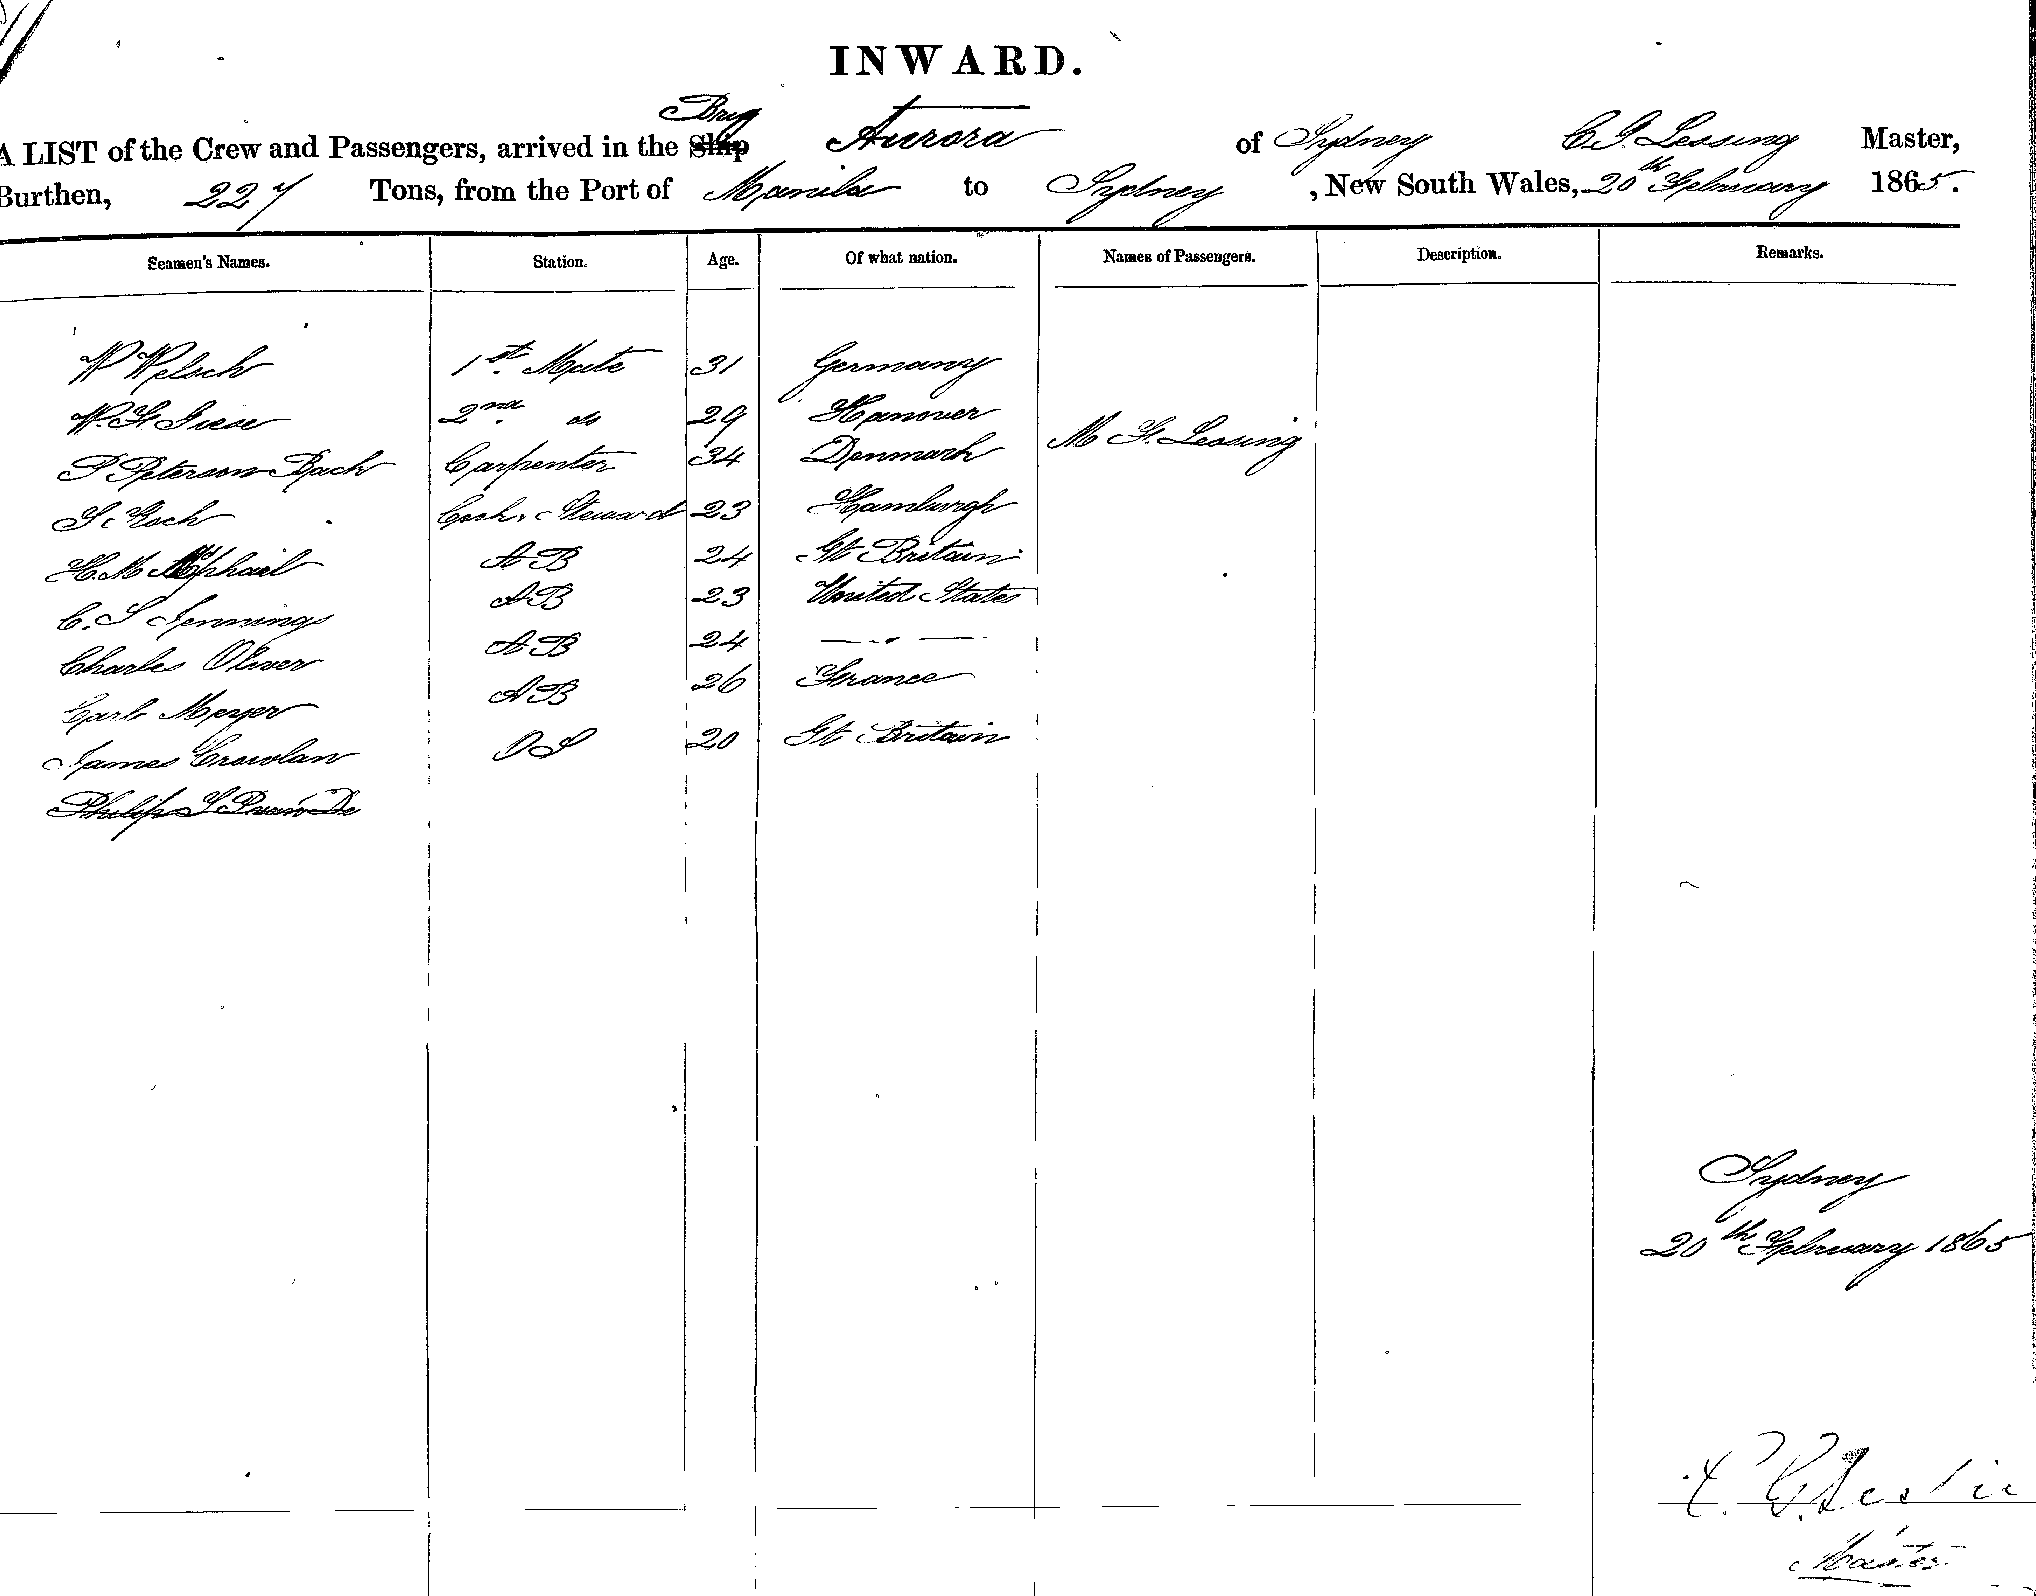 INWARD.
Brig
A LIST of the Crew and Passengers, arrived in the Ship Aurora of Sydney C. G. Lessing Master,
Burthen, 227 Tons, from the Port of Manila to Sydney, New South Wales, 20th February 1865.
Seamen's Names. Station. Age. Of what nation. Names of Passengers. Description. Remarks.
W Welsch 1st Mate 31 Germany
W. H. Giese 2nd do 29 Hanover
M F. Lessing
P Peterson Bach Carpenter 34 Denmark
Cook & Steward 23 Hamburgh
H. M Mcphail AB 24 Gt Britain
C. S Jennings AB 23 United States
Charles Oliver AB 24 — " —
Carl Meyer AB 26 France
James Crowlan OS 20 Gt Britain
Philip
Sydney
20th February 1865
Master